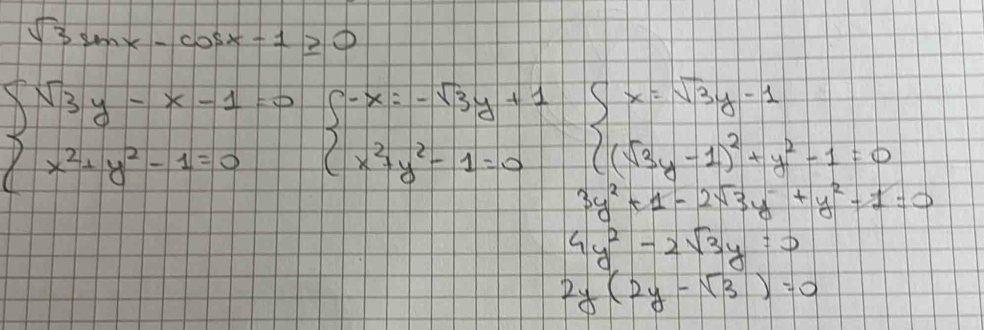 √3 senx - cosx - 1 ≥ 0
{ √3y - x - 1 = 0 { -x = -√3y + 1 { x = √3y - 1
{ x² + y² - 1 = 0 { x² + y² - 1 = 0 { (√3y - 1)² + y² - 1 = 0
3y² + 1 - 2√3y + y² - 1 = 0
4y² - 2√3y = 0
2y (2y - √3) = 0